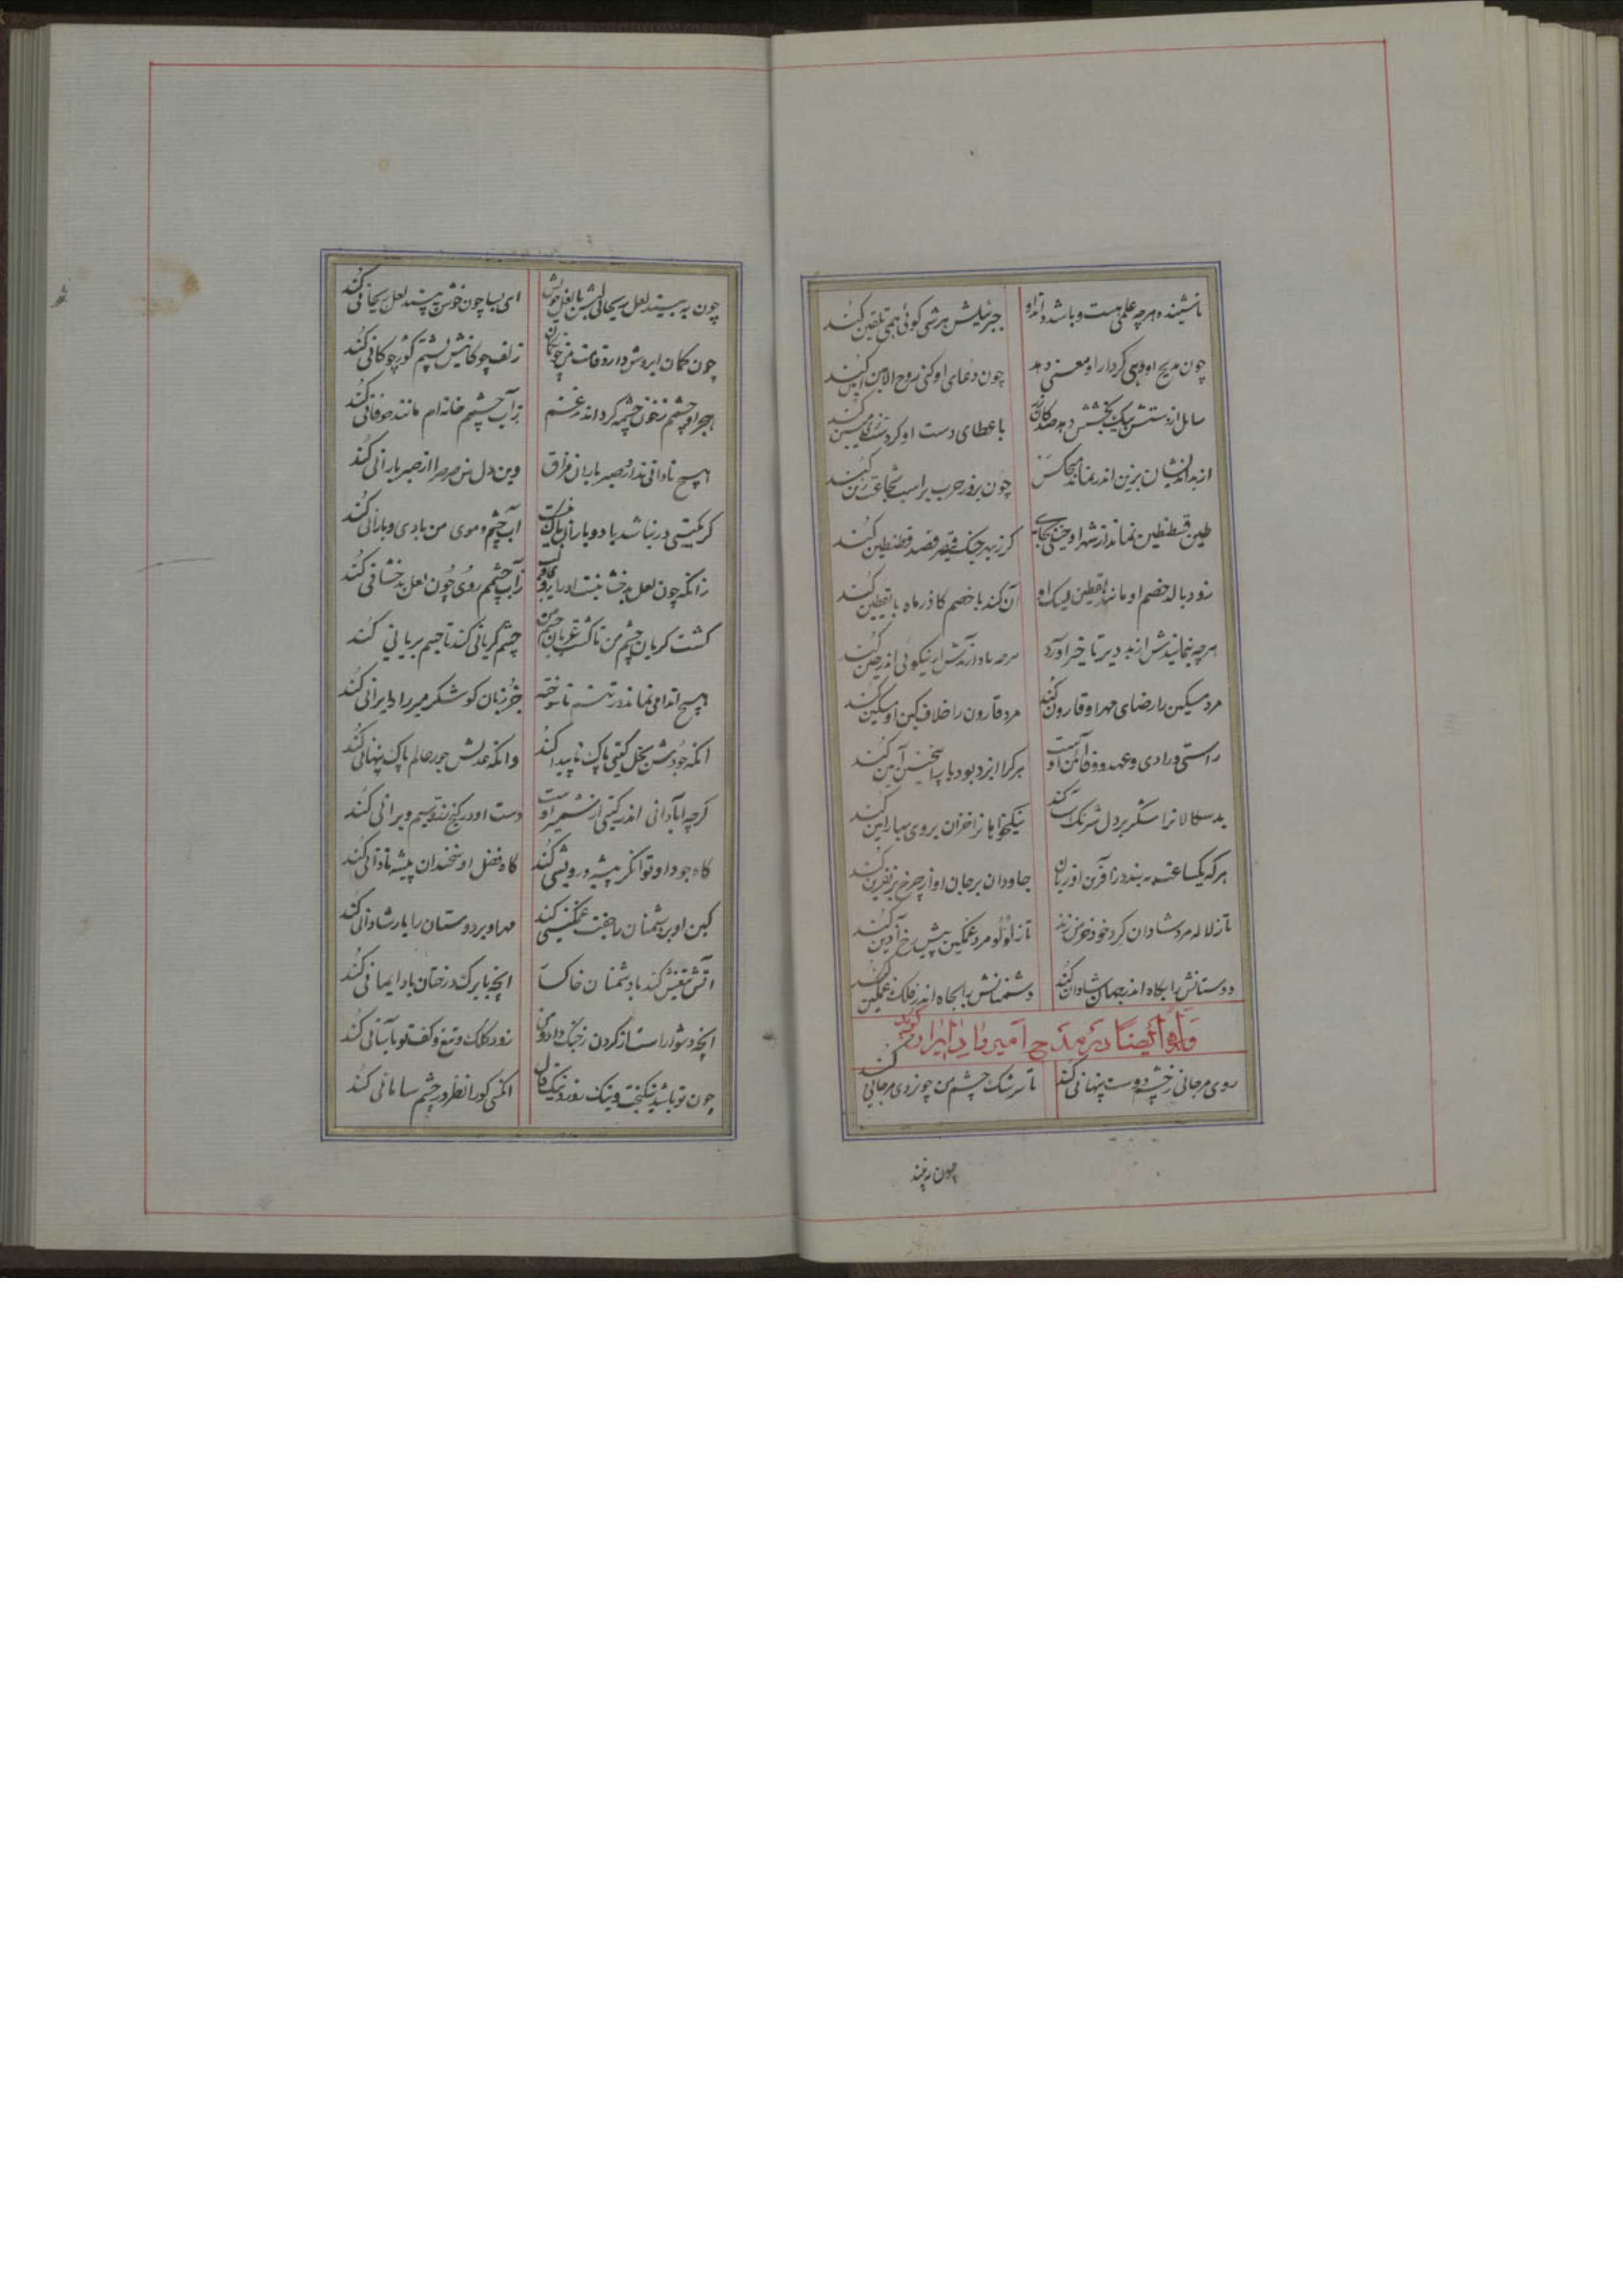 ناشینده هرچه علمی هست و باشد داند او جبرئیلش هر شبی کوئی همی تلقین کند
چون مدیح او دهی کردار او معنی دهد چون دعای او کنی روح الامین آمین کند
سایل از دستش بیک بخشش دهد صد کان زر با عطای دست او
از بداندیشان بزین اندر نماند هیچکس چون بروز حرب بر اسب شجاعت زین کند
طین قسطنطین نماند از شهر او کر ز بهر جنک قیصر قصد قسطنطین کند
زود بالد خصم او مانند یقطین لیک او آن کند با خصم کاذر ماه با یقطین کند
هرچه بنمایندش از بد دیر تا خیر آورد هرچه یاد آرندش از نیکوئی اندر حین کند
مرد مسکین را رضای مهر او قارون کند مرد قارون را خلاف کین او مسکین کند
راستی و رادی و عهد و وفا آئین اوست هر کرا ایزد بود یار اینچنین آیین کند
بد سکالانرا شکر بر دل شرنک آسا کند نیکخواهانرا خزان بر وی بهار آیین کند
هر که یکساعت به بندد ز آفرین او زبان جاودان بر جان او از چرخ بر نفرین کند
تا ز لاله مرد شادان کرد خود خرمن زند تا ز لؤلؤ مرد غمکین پیش رخ آذین کند
دوستانش را بکاه اندر جهان شادان کند دشمنانش را بجاه اندر فلک غمکین کند
وله ایضا در مدح امیر دارا ایران کوید
روی مرجانی ز خشم دوست پنهانی کند تا سرشک چشم من چون روی مرجانی کند
چون به بیند
چون به بیند لعل ریحانی لبش با لعل خویش ای بسا چون خوشی به بیند لعل ریحانی کند
چون کمان ابروش دارد قامت من چون کمان زلف چوکانیش پشتم کوژ چوکانی کند
هجر او چشمم ز خون چشمه کرداند ز غم ز آب چشمم خانه ام مانند خوفانی کند
هیچ نادانی ندارد صبر یاران فراق وین دل من مر مرا از صبر یارانی کند
کر بکیتی در نباشد باد و باران باک نیست آب چشم و موی من بادی و بارانی کند
زانکه چون لعل بدخشانیست او را ز آب چشمم روی چون لعل بدخشانی کند
کشت کریان چشم من تا کشت عریان جسم من چشم کریانی کند تا جسم بریانی کند
هیچ اندامی نماند در تنم ناسوخته جز زبان کو شکر میر راد ایرانی کند
آنکه جودش بخل کیتی پاک ناپیدا کند وانکه عدلش جور عالم پاک پنهانی کند
کرچه آبادانی اندر کیتی از شمشیر اوست دست او در کنج زر و سیم ویرانی کند
کاه جود او توانکر پیشه درویشی کند کاه فضل او سخندان پیشه نادانی کند
کین او بر دشمنان را جفت غمکینی کند مهر او بر دوستان را یار شادانی کند
آتش تیغش کند با دشمنان خاکسار آنچه با برک درختان باد ابانی کند
آنچه دشوار است از کردن ز جنک و داد و دین زود کلک و تیغ و کف تو بآسانی کند
چون تو باشد نیکبخت و نیک روز و نیک فال آنکسی کو را نظر در چشم سامانی کند